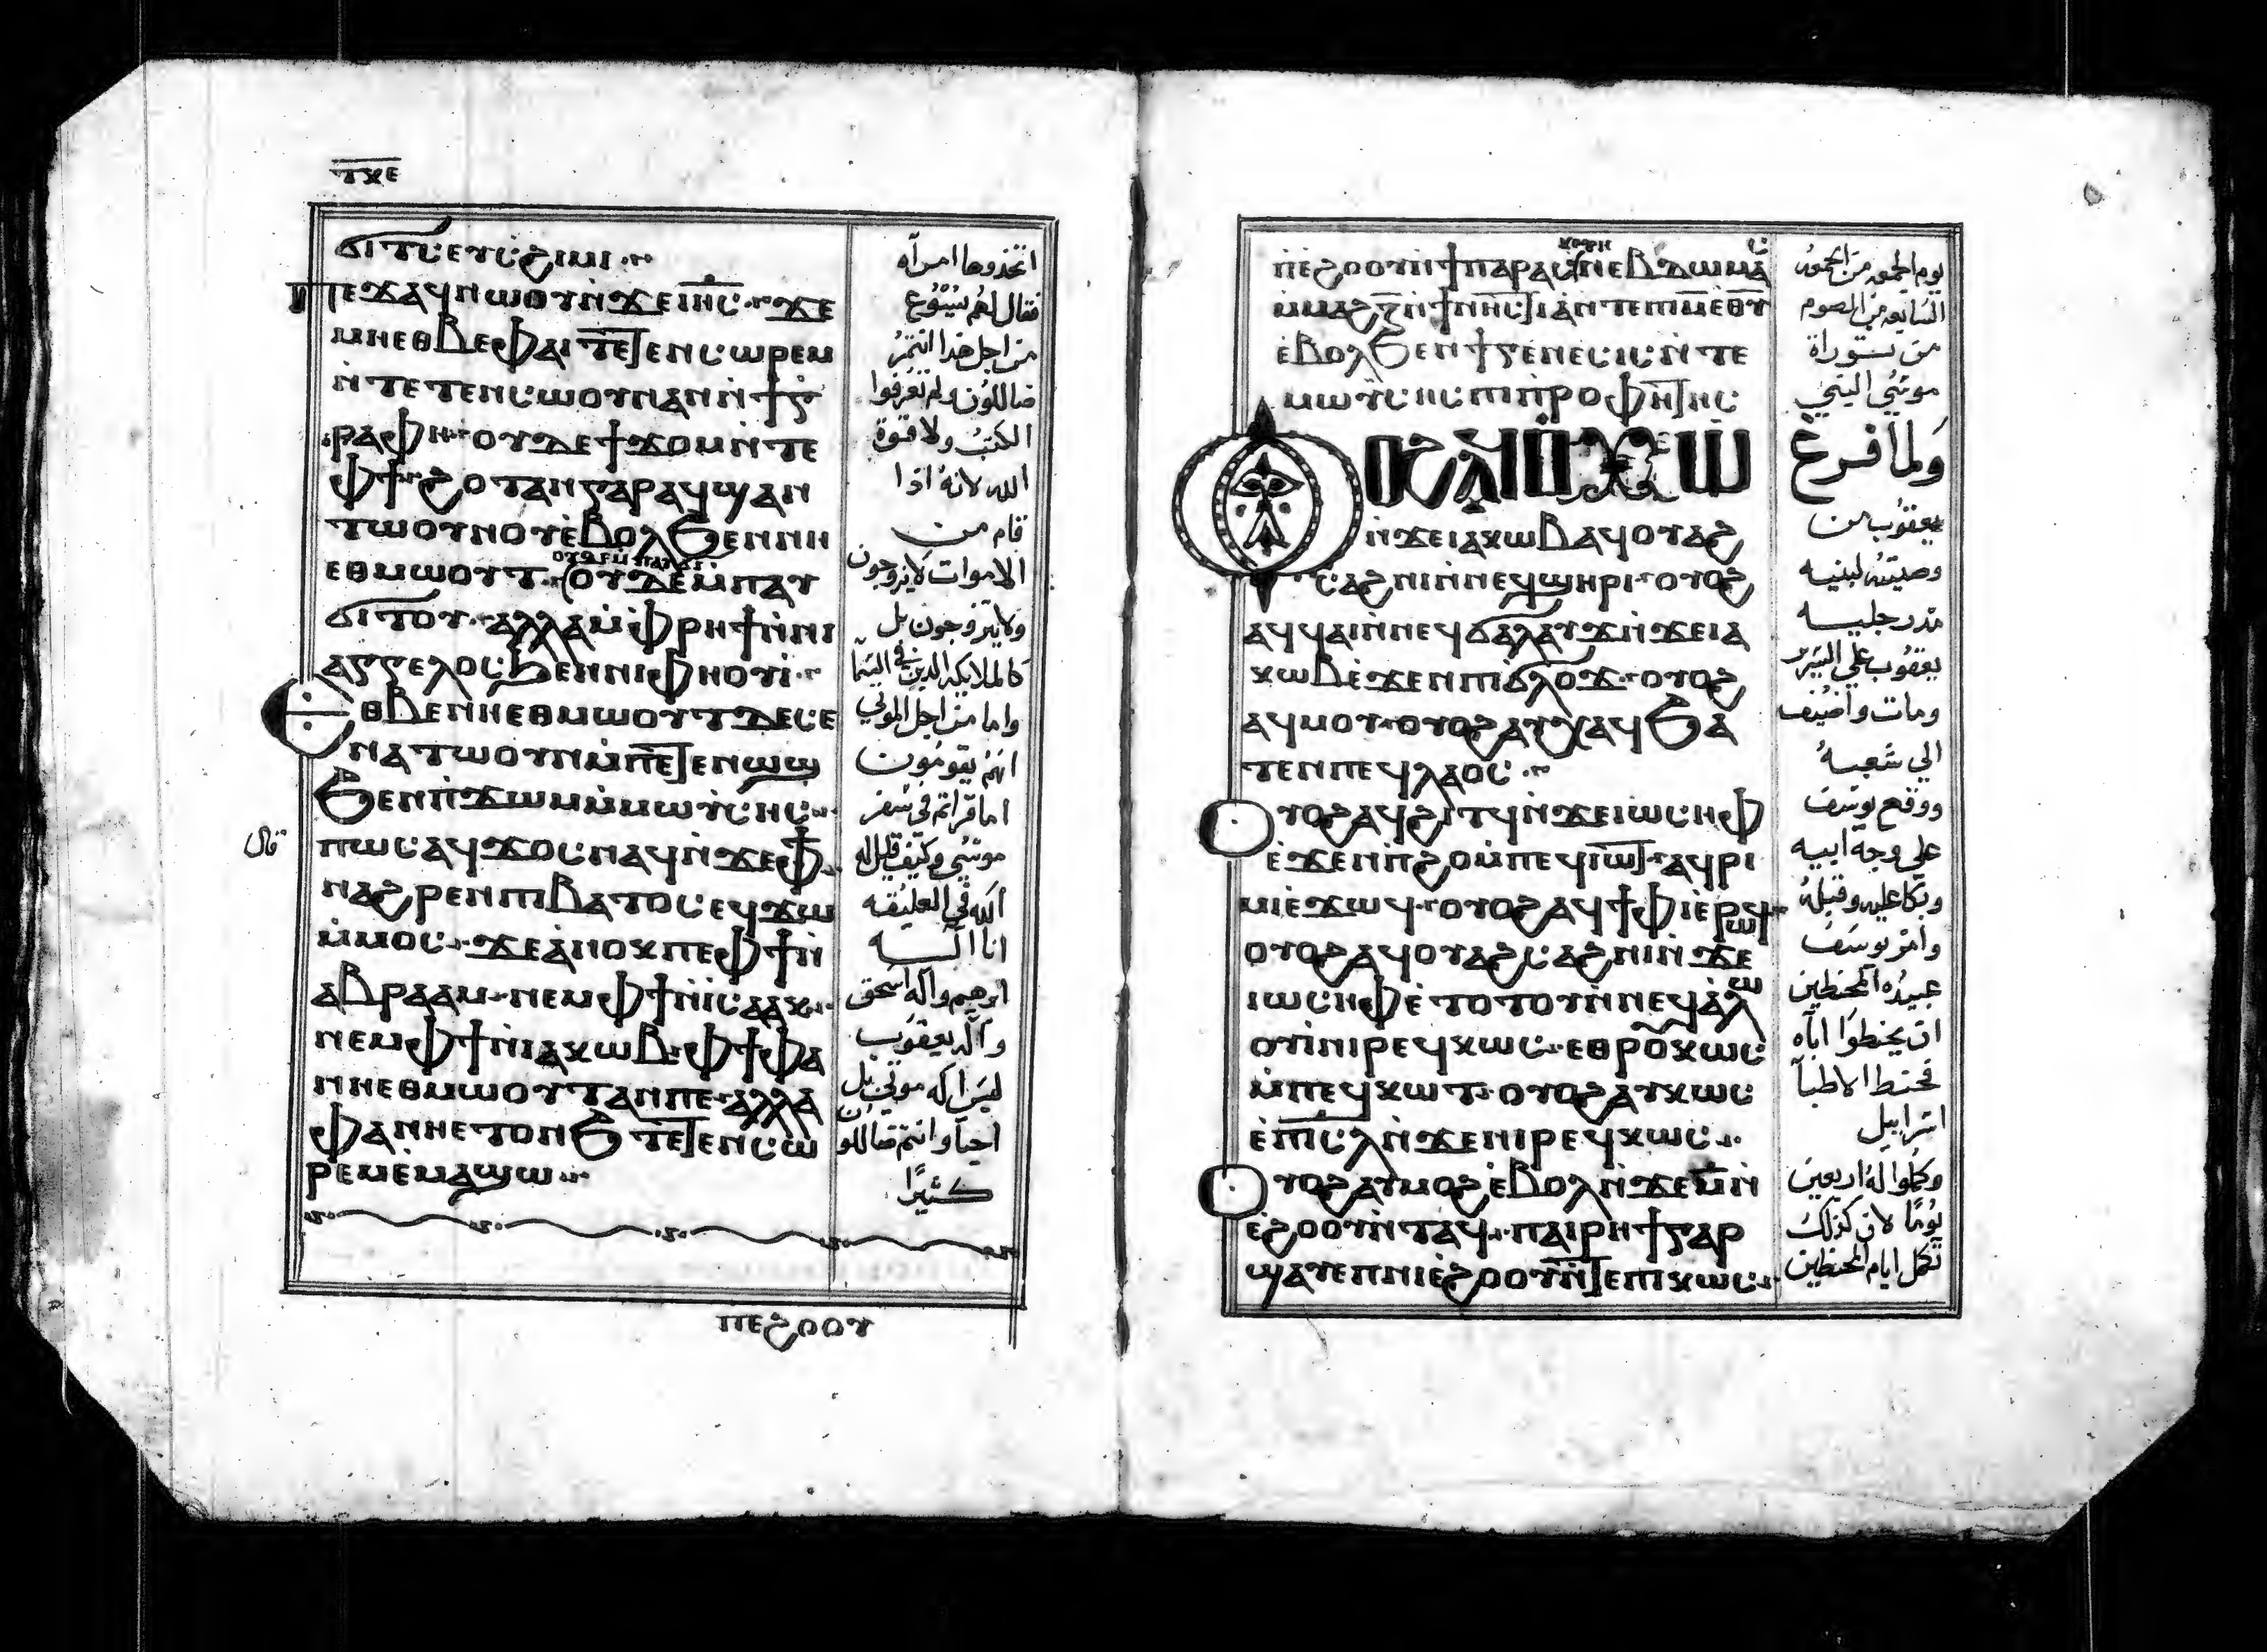 ⲧⲝⲉ
ϭⲓⲧⲥ ⲉⲩⲥϩⲓⲙⲓ
ⲡⲉϫⲁϥ ⲛⲱⲟⲩ ⲛ̀ϫⲉ ⲓⲏ̅ⲥ̅ ϫⲉ
ⲙⲏ ⲉⲑⲃⲉ ⲫⲁⲓ ⲧⲉⲧⲉⲛⲥⲱⲣⲉⲙ
ⲛ̀ⲧⲉⲧⲉⲛⲥⲱⲟⲩⲛ ⲁⲛ ⲛ̀ϯⲅ
ⲣⲁⲫⲏ ⲟⲩⲇⲉ ϯϫⲟⲙ ⲛ̀ⲧⲉ
ⲫϯ ϩⲟⲧⲁⲛ ⲅⲁⲣ ⲁⲩϣⲁⲛ
ⲧⲱⲟⲩⲛⲟⲩ ⲉ̀ⲃⲟⲗ ϧⲉⲛ ⲛⲏ
ⲉⲑⲙⲱⲟⲩⲧ ⲟⲩⲇⲉ ⲙ̀ⲡⲁⲩ
ϭⲓⲧⲟⲩ ⲁⲗⲗⲁ ⲙ̀ⲫⲣⲏϯ ⲛ̀ⲛⲓ
ⲁⲅⲅⲉⲗⲟⲥ ϧⲉⲛ ⲛⲓⲫⲏⲟⲩⲓ
ⲉⲑⲃⲉ ⲛⲏⲉⲑⲙⲱⲟⲩⲧ ⲇⲉ ⲥⲉ
ⲛⲁⲧⲱⲟⲩⲛ ⲙ̀ⲡⲉⲧⲉⲛⲱϣ
ϧⲉⲛ ⲡ̀ϫⲱⲙ ⲙ̀ⲙⲱⲩ̀ⲥⲏⲥ
ⲡⲱⲥ ⲁϥϫⲟⲥ ⲛⲁϥ ⲛ̀ϫⲉ ⲫϯ
ⲛⲁϩⲣⲉⲛ ⲡⲓⲃⲁⲧⲟⲥ ⲉϥϫⲱ
ⲙ̀ⲙⲟⲥ ϫⲉ ⲁ̀ⲛⲟⲕ ⲡⲉ ⲫϯ ⲛ̀
ⲁⲃⲣⲁⲁⲙ ⲛⲉⲙ ⲫϯ ⲛ̀ⲓⲥⲁⲁⲕ
ⲛⲉⲙ ⲫϯ ⲛ̀ⲓⲁⲕⲱⲃ ⲫϯ ⲫⲁ
ⲛⲏⲉⲑⲙⲱⲟⲩⲧ ⲁⲛ ⲡⲉ ⲁⲗⲗⲁ
ⲫⲁ ⲛⲏⲉⲧⲟⲛϧ ⲧⲉⲧⲉⲛⲥⲱ
ⲣⲉⲙ ⲉ̀ⲙⲁϣⲱ
ⲡⲉϩⲟⲟⲩ
اتخذوها امرآه
فقال لهم يسوع
من اجل هذا انتم
ضاللون ولم تعرفوا
الكتب ولا قوة
الله لانه اذا
قام من
الاموات لا يزوجون
ولا يتزوجون بل
كالملايكه الذين في السمآ
واما من اجل الموتي
انهم يقومون
اما قراتم في سفر
موسي وكيف قيل له
قال
الله في العليقه
انا اله
ابرهيم واله اسحق
واله يعقوب
ليس اله موتي بل
احيا وانتم ضاللون
كثيرًا
ⲡⲉϩⲟⲟⲩ ⲛ̀ϯⲡⲁⲣⲁⲥⲕⲉⲩⲏ ⲛ̀ⲉⲃⲇⲱⲙⲁⲥ
ⲙ̀ⲙⲁϩ ⲍ̅ ⲛ̀ϯⲛⲏⲥⲧⲓⲁ ⲛ̀ⲧⲉ ⲡⲓⲙ̅ ⲉ̀ⲑⲩ
ⲉ̀ⲃⲟⲗ ϧⲉⲛ ϯⲅⲉⲛⲉⲥⲓⲥ ⲛ̀ⲧⲉ
ⲙⲱⲩ̀ⲥⲏⲥ ⲡⲓⲡⲣⲟⲫⲏⲧⲏⲥ
ⲟⲩⲟϩ
ⲛ̀ϫⲉ ⲓⲁⲕⲱⲃ ⲁϥⲟⲩⲁϩ
ⲥⲁϩⲛⲓ ⲛ̀ⲛⲉϥϣⲏⲣⲓ ⲟⲩⲟϩ
ⲁϥϥⲁⲓ ⲛ̀ⲛⲉϥϭⲁⲗⲁⲩϫ ⲛ̀ϫⲉ ⲓⲁ
ⲕⲱⲃ ⲉ̀ϫⲉⲛ ⲡⲓϭⲗⲟϫ ⲟⲩⲟϩ
ⲁϥⲙⲟⲩ ⲟⲩⲟϩ ⲁⲩⲭⲁϥ ϧⲁ
ⲧⲉⲛ ⲡⲉϥⲗⲁⲟⲥ
ⲟⲩⲟϩ ⲁϥϩⲓⲧϥ ⲛ̀ϫⲉ ⲓⲱⲥⲏⲫ
ⲉ̀ϫⲉⲛ ⲡ̀ϩⲟ ⲙ̀ⲡⲉϥⲓⲱⲧ ⲁϥⲣⲓ
ⲙⲓ ⲉ̀ϫⲱϥ ⲟⲩⲟϩ ⲁϥϯⲫⲓ ⲉ̀ⲣⲱϥ
ⲟⲩⲟϩ ⲁϥⲟⲩⲁϩⲥⲁϩⲛⲓ ⲛ̀ϫⲉ
ⲓⲱⲥⲏⲫ ⲉ̀ⲧⲟⲧⲟⲩ ⲛ̀ⲛⲉϥⲁ̀ⲗⲱ
ⲟⲩⲓ̀ ⲛⲓⲣⲉϥⲕⲱⲥ ⲉⲑⲣⲟⲩⲕⲱⲥ
ⲙ̀ⲡⲉϥⲓⲱⲧ ⲟⲩⲟϩ ⲁⲩⲕⲱⲥ
ⲉ̀ⲡⲓⲥⲗ ⲛ̀ϫⲉ ⲛⲓⲣⲉϥⲕⲱⲥ
ⲟⲩⲟϩ ⲁⲩⲙⲟϩ ⲉ̀ⲃⲟⲗ ⲛ̀ϫⲉ ⲙ̅ ⲛ̀
ⲉ̀ϩⲟⲟⲩ ⲛ̀ⲧⲁϥ ⲡⲁⲓⲣⲏϯ ⲅⲁⲣ
ϣⲁⲩⲉⲡ ⲛⲓⲉ̀ϩⲟⲟⲩ ⲛ̀ⲧⲉ ⲡⲓⲕⲱⲥ
يوم الجمعه من الجمعه
السابعه من الصوم
من توراة
موسي النبي
ولما فرغ
يعقوب من
وصيته لبنيه
مد رجليه
يعقوب علي السرير
ومات واضيف
الي شعبه
ووقع يوسف
علي وجه ابيه
وبكا عليه وقبله
وامر يوسف
عبيده المحنطين
ان يحنطوا اباه
فحنط الاطبآ
اسراييل
وكملوا له اربعين
يومًا لان كذلك
تكمل ايام المحنطين